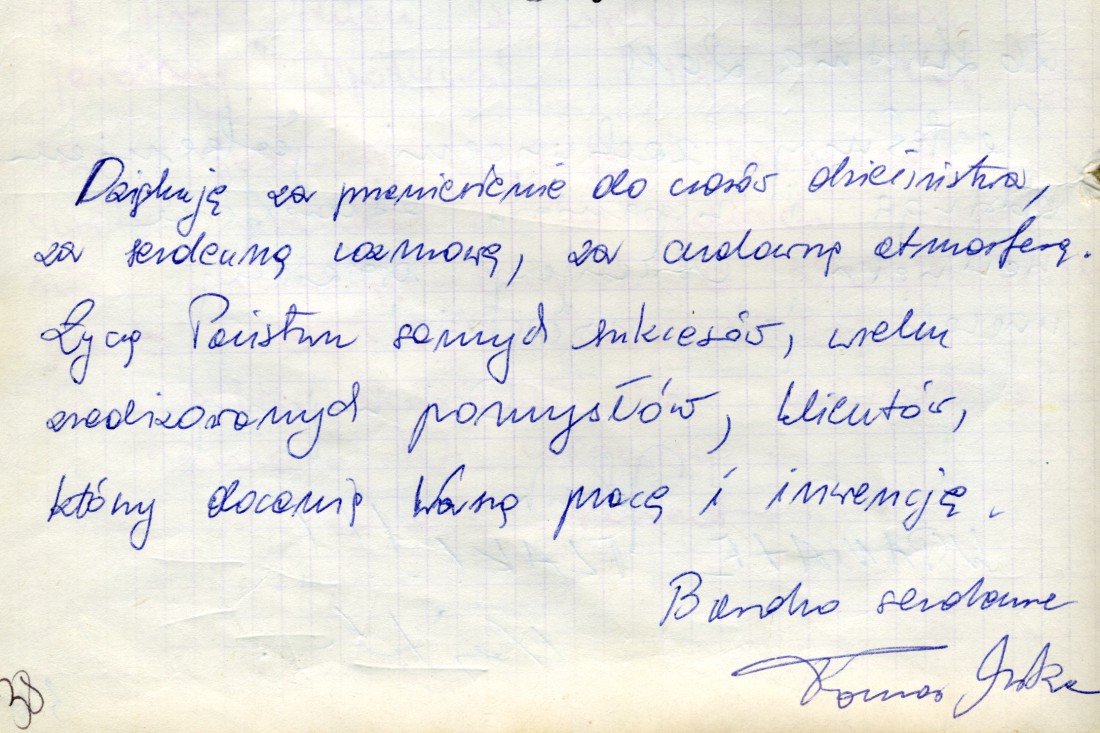 Dziękuję za przeniesienie do czasów dzieciństwa,
za serdeczną rozmowę, za cudowną atmosferę.
Życzę Państwu samych sukcesów, wielu
zrealizowanych pomysłów, klientów,
którzy docenią Waszą pracę i inwencję.
Bardzo serdecznie
38